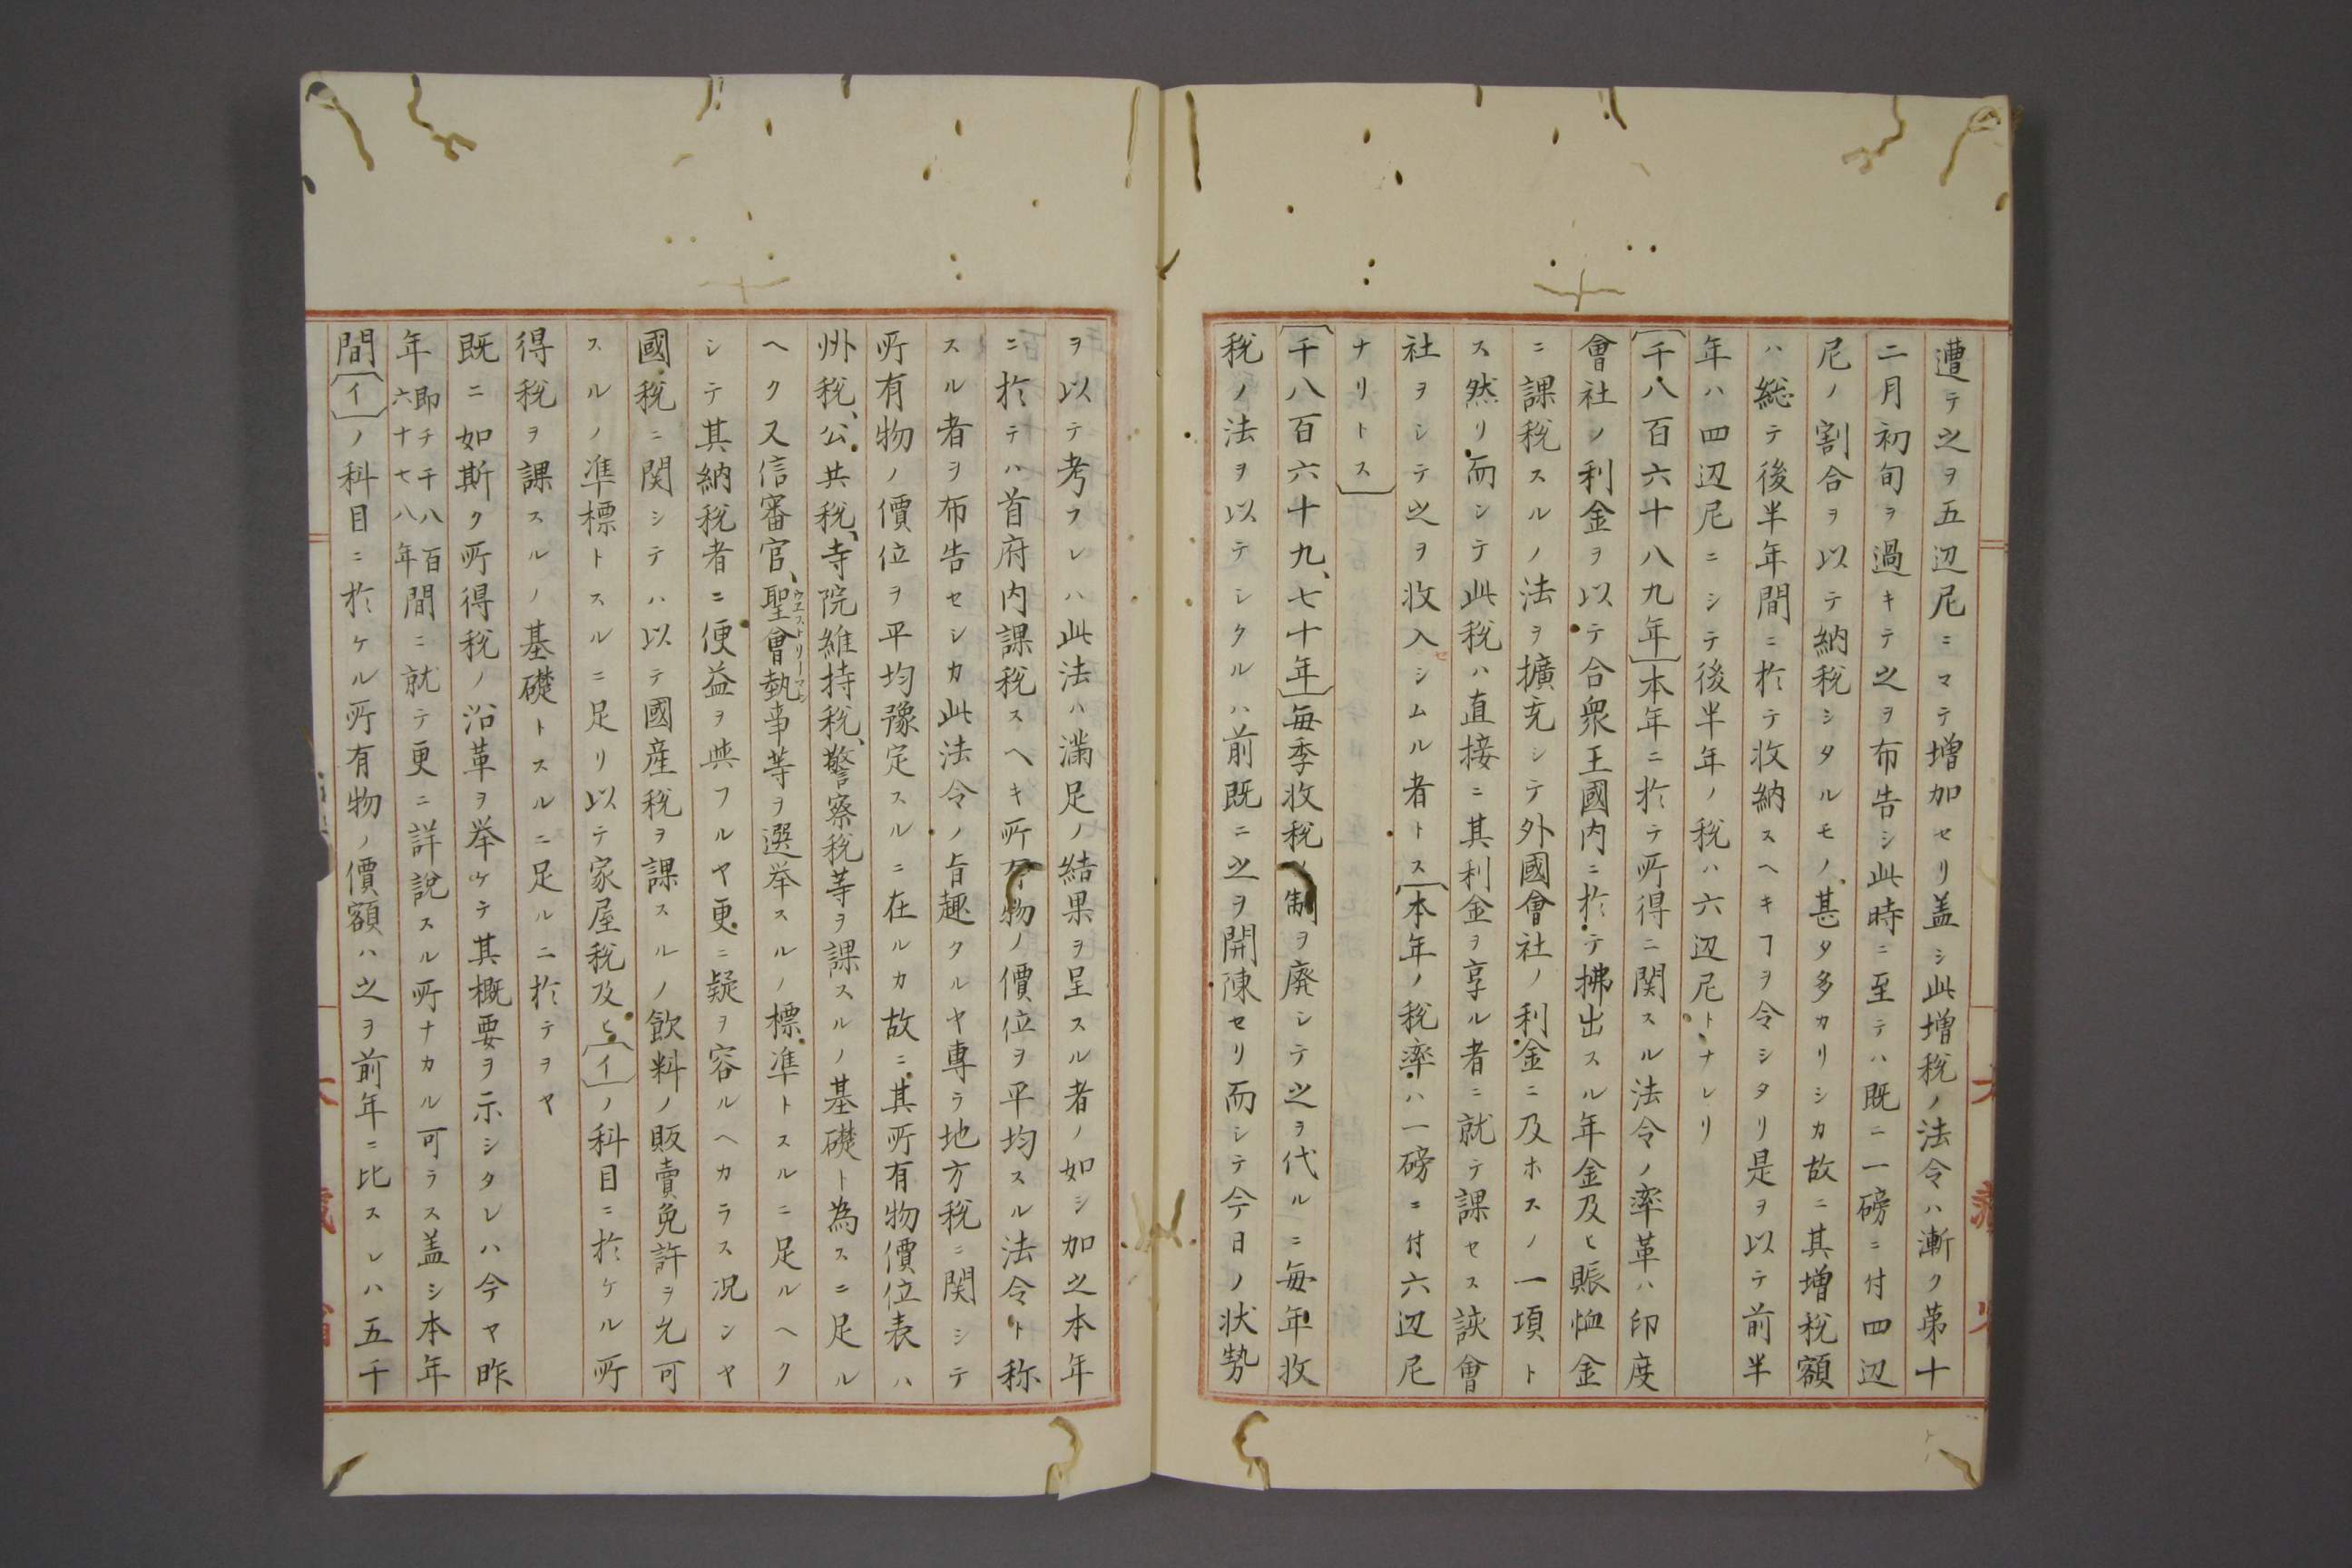 遭テ之ヲ五辺尼ニマテ増加セリ盖シ此増税ノ法令ハ漸ク第十
二月初旬ヲ過キテ之ヲ布告シ此時ニ至テハ既ニ一磅ニ付四辺
尼ノ割合ヲ以テ納税シタルモノ甚タ多カリシカ故ニ其増税額
ハ総テ後半年間ニ於テ收納スヘキヿヲ令シタリ是ヲ以テ前半
年ハ四辺尼ニシテ後半年ノ税ハ六辺尼トナレリ
〔千八百六十八九年〕本年ニ於テ所得ニ関スル法令ノ率革ハ印度
會社ノ利金ヲ以テ合衆王國内ニ於テ拂出スル年金及ヒ賑恤金
ニ課税スルノ法ヲ擴充シテ外國會社ノ利金ニ及ホスノ一項ト
ス然リ而シテ此税ハ直接ニ其利金ヲ享ル者ニ就テ課セス該會
社ヲシテ之ヲ收入セシムル者トス〔本年ノ税率ハ一磅ニ付六辺尼
ナリトス〕
〔千八百六十九、七十年〕毎季收税ノ制ヲ廃シテ之ヲ代ルニ毎年收
税ノ法ヲ以テシタルハ前既ニ之ヲ開陳セリ而シテ今日ノ状勢
ヲ以テ考フレハ此法ハ滿足ノ結果ヲ呈スル者ノ如シ加之本年
ニ於テハ首府内課税スヘキ所有物ノ價位ヲ平均スル法令ト称
スル者ヲ布告セシカ此法令ノ旨趣タルヤ專ラ地方税ニ関シテ
所有物ノ價位ヲ平均豫定スルニ在ルカ故ニ其所有物價位表ハ
州税、公共税、寺院維持税、警察税等ヲ課スルノ基礎ト為スニ足ル
ヘク又信審官、聖會執事等ヲ選挙スルノ標準トスルニ足ルヘク
シテ其納税者ニ便益ヲ與フルヤ更ニ疑ヲ容ルヘカラス况ンヤ
國税ニ関シテハ以テ國産税ヲ課スルノ飲料ノ販賣免許ヲ允可
スルノ準標トスルニ足リ以テ家屋税及ヒ〔イ〕ノ科目ニ於ケル所
得税ヲ課スルノ基礎トスルニ足ルニ於テヲヤ
既ニ如斯ク所得税ノ沿革ヲ挙ケテ其概要ヲ示シタレハ今ヤ昨
年即チ千八百六十七八年間ニ就テ更ニ詳説スル所ナカル可ラス盖シ本年
間〔イ〕ノ科目ニ於ケル所有物ノ價額ハ之ヲ前年ニ比スレハ五千